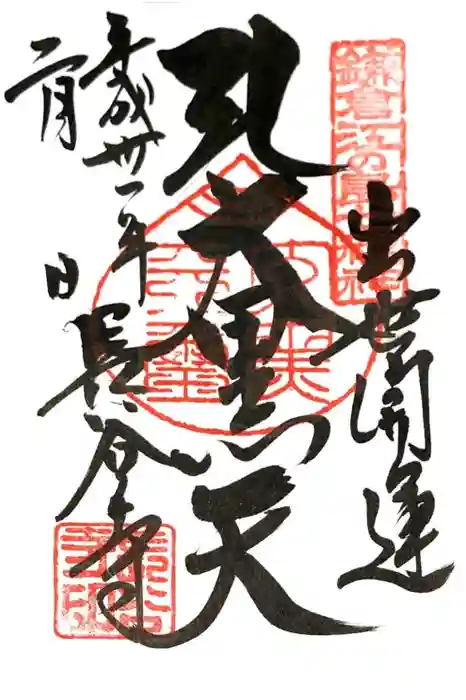 鎌倉江の島七福神
出世開運
大黒天
平成卅一年
二月 日
長谷寺